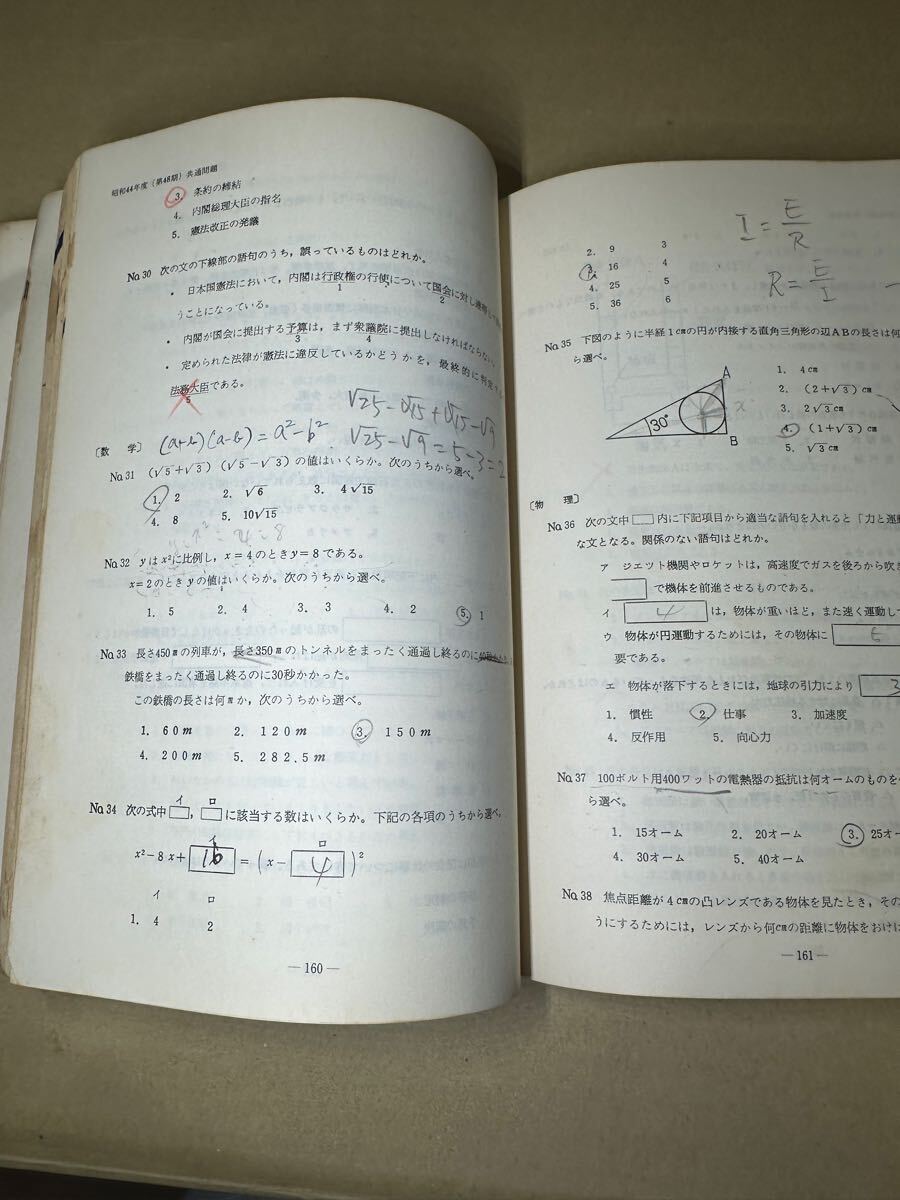 昭和44年度(第48期)共通問題
3. 条約の締結
4. 内閣総理大臣の指名
5. 憲法改正の発議
No.30 次の文の下線部の語句のうち,誤っているものはどれか。
・ 日本国憲法において,内閣は行政権の行使について国会に対し連帯して
1 2
うことになっている。
・ 内閣が国会に提出する予算は,まず衆議院に提出しなければならない。
3 4
・ 定められた法律が憲法に違反しているかどうかを,最終的に判定する
法務大臣である。
5
√25-√15+√15-√9
√25-√9=5-3=2
〔数 学〕 (a+b)(a-b)=a²-b²
No.31 (√5+√3)(√5-√3)の値はいくらか。次のうちから選べ。
1. 2 2. √6 3. 4√15
4. 8 5. 10√15
No.32 yはx²に比例し,x=4のときy=8である。
x=2のときyの値はいくらか。次のうちから選べ。
1. 5 2. 4 3. 3 4. 2 5. 1
No.33 長さ450mの列車が,長さ350mのトンネルをまったく通過し終るのに40秒かかり
鉄橋をまったく通過し終るのに30秒かかった。
この鉄橋の長さは何mか,次のうちから選べ。
1. 60m 2. 120m 3. 150m
4. 200m 5. 282.5m
No.34 次の式中□,□に該当する数はいくらか。下記の各項のうちから選べ。
イ ロ
x²-8x+16=(x-4)²
イ ロ
1. 4 2
―160―
I=E/R
R=E/I
2. 9 3
3. 16 4
4. 25 5
5. 36 6
No.35 下図のように半経1cmの円が内接する直角三角形の辺ABの長さは何
ら選べ。
1. 4cm
2. (2+√3)cm
3. 2√3cm
4. (1+√3)cm
5. √3cm
A
30°
x
B
〔物 理〕
No.36 次の文中□内に下記項目から適当な語句を入れると「力と運動
な文となる。関係のない語句はどれか。
ア ジェット機関やロケットは,高速度でガスを後ろから吹き
□で機体を前進させるものである。
イ 4 は,物体が重いほど,また速く運動して
ウ 物体が円運動するためには,その物体に
要である。
エ 物体が落下するときには,地球の引力により 3
1. 慣性 2. 仕事 3. 加速度
4. 反作用 5. 向心力
No.37 100ボルト用400ワットの電熱器の抵抗は何オームのものを
ら選べ。
1. 15オーム 2. 20オーム 3. 25オー
4. 30オーム 5. 40オーム
No.38 焦点距離が4cmの凸レンズである物体を見たとき,その
うにするためには,レンズから何cmの距離に物体をおけば
―161―